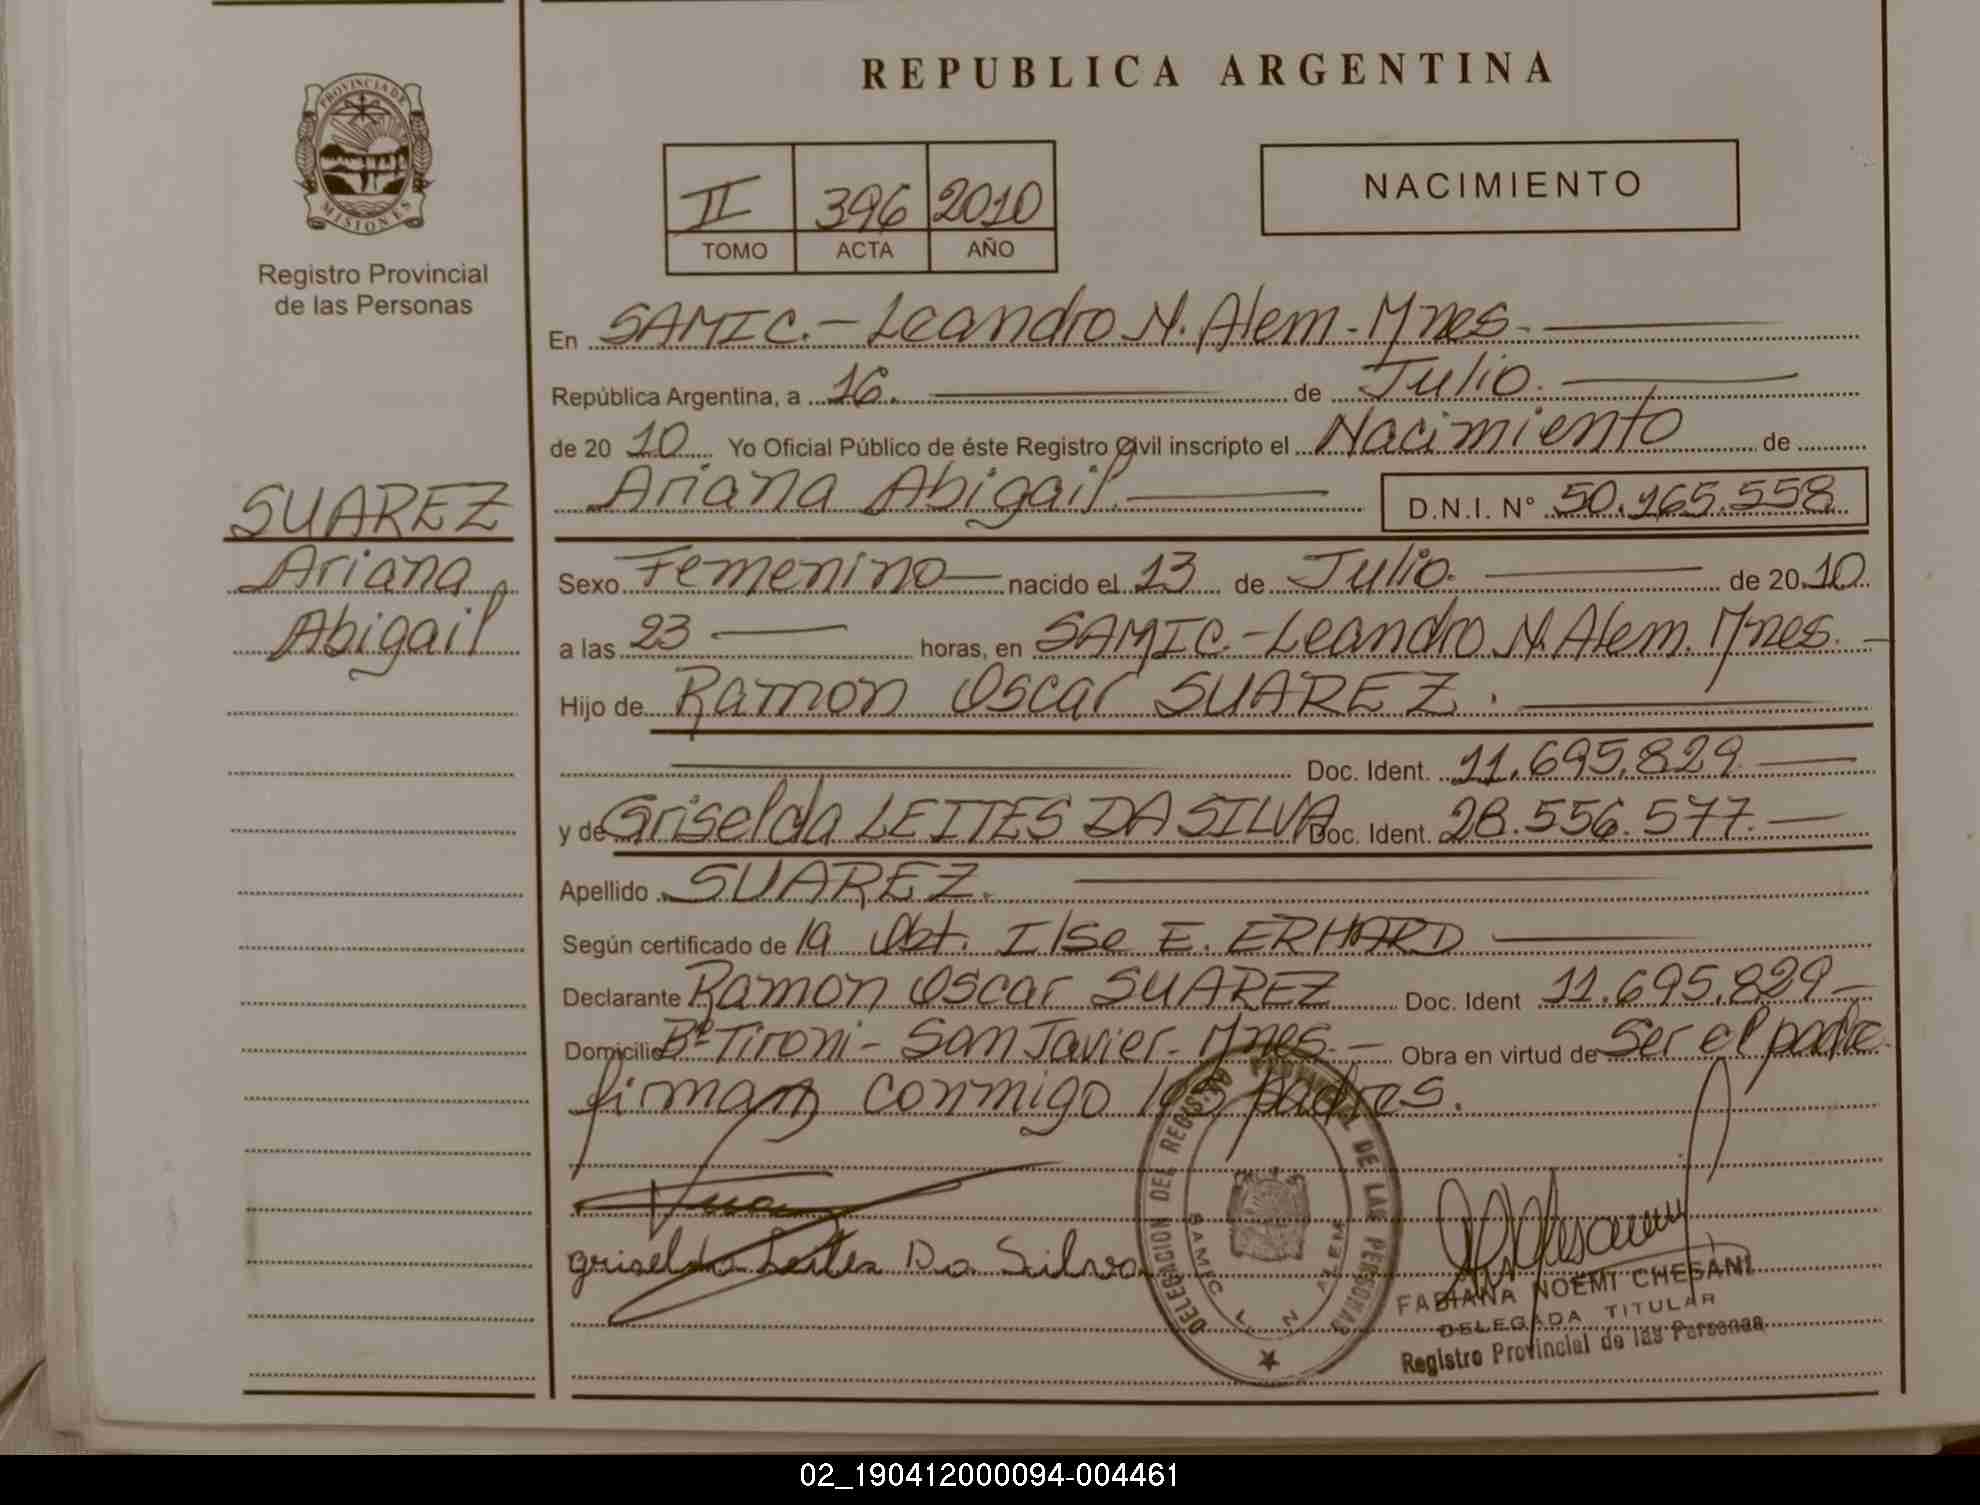 REPUBLICA ARGENTINA
PROVINCIA DE
MISIONES
Registro Provincial
de las Personas
II 396 2010
TOMO ACTA AÑO
NACIMIENTO
SUAREZ
Ariana
Abigail
En SAMIC.- Leandro N. Alem - Mnes.-
República Argentina, a 16. de Julio.
de 20 10 Yo Oficial Público de éste Registro Civil inscripto el Nacimiento de
Ariana Abigail. D.N.I. N° 50.165.558
Sexo Femenino nacido el 13 de Julio. de 20 10
a las 23 horas, en SAMIC.- Leandro N. Alem. Mnes.
Hijo de Ramon Oscar SUAREZ.
Doc. Ident. 11.695.829
y de Griselda LEITES DA SILVA Doc. Ident. 28.556.577.
Apellido SUAREZ.
Según certificado de la Obt. Ilse E. ERHARD
Declarante Ramon Oscar SUAREZ Doc. Ident 11.695.829
Domicilio Bº Tironi - San Javier - Mnes. Obra en virtud de Ser el padre.
firman conmigo los padres.
Griselda Leites Da Silva
DELEGACION DEL REGISTRO PROVINCIAL DE LAS PERSONAS
SAMIC L. N. ALEM
FABIANA NOEMI CHESANI
DELEGADA TITULAR
Registro Provincial de las Personas
02_190412000094-004461